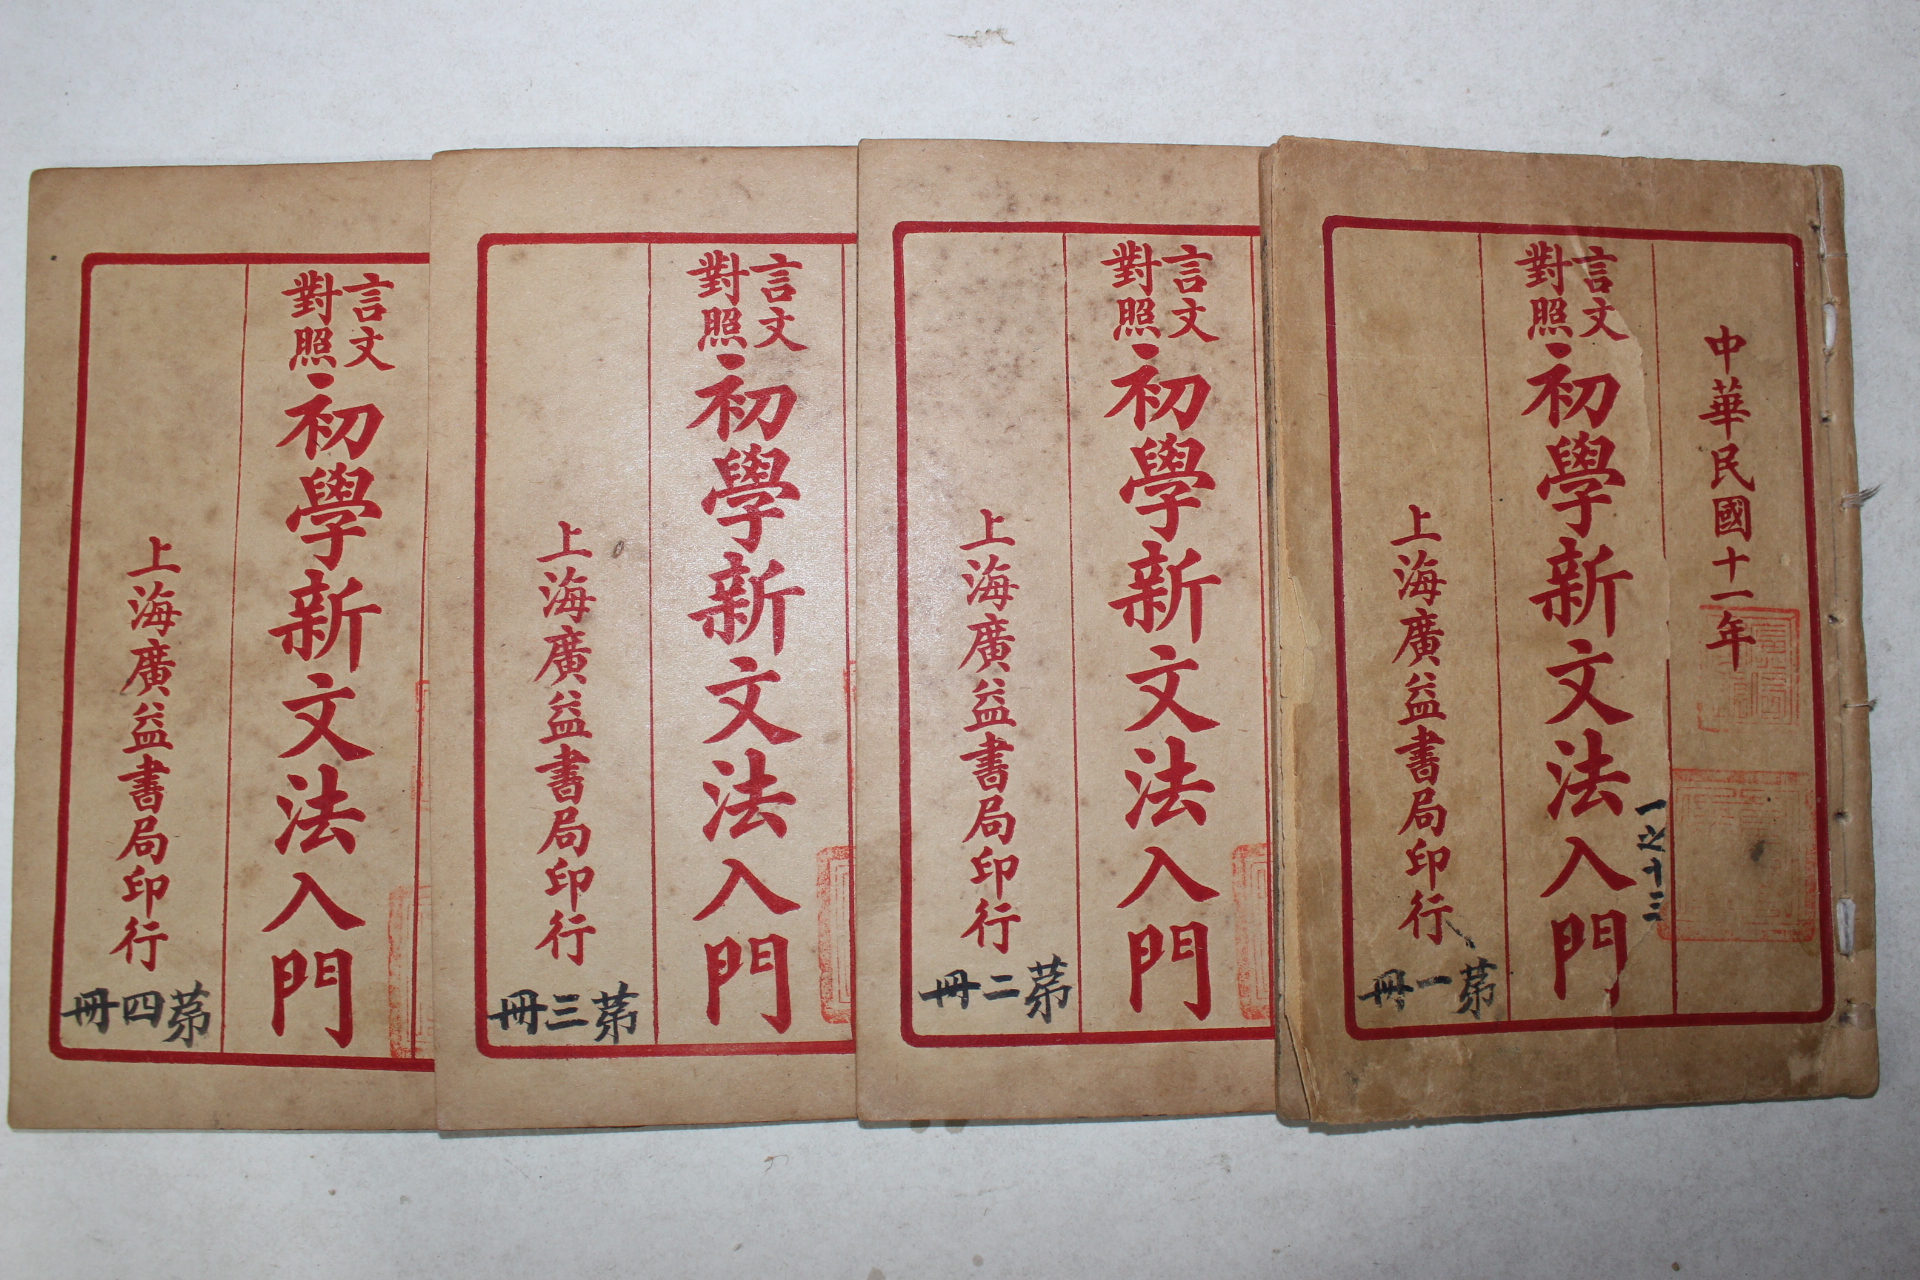 中華民國十一年
言文
對照
初學新文法入門
一之十三
上海廣益書局印行
第一冊
言文
對照
初學新文法入門
上海廣益書局印行
第二冊
言文
對照
初學新文法入門
上海廣益書局印行
第三冊
言文
對照
初學新文法入門
上海廣益書局印行
第四冊